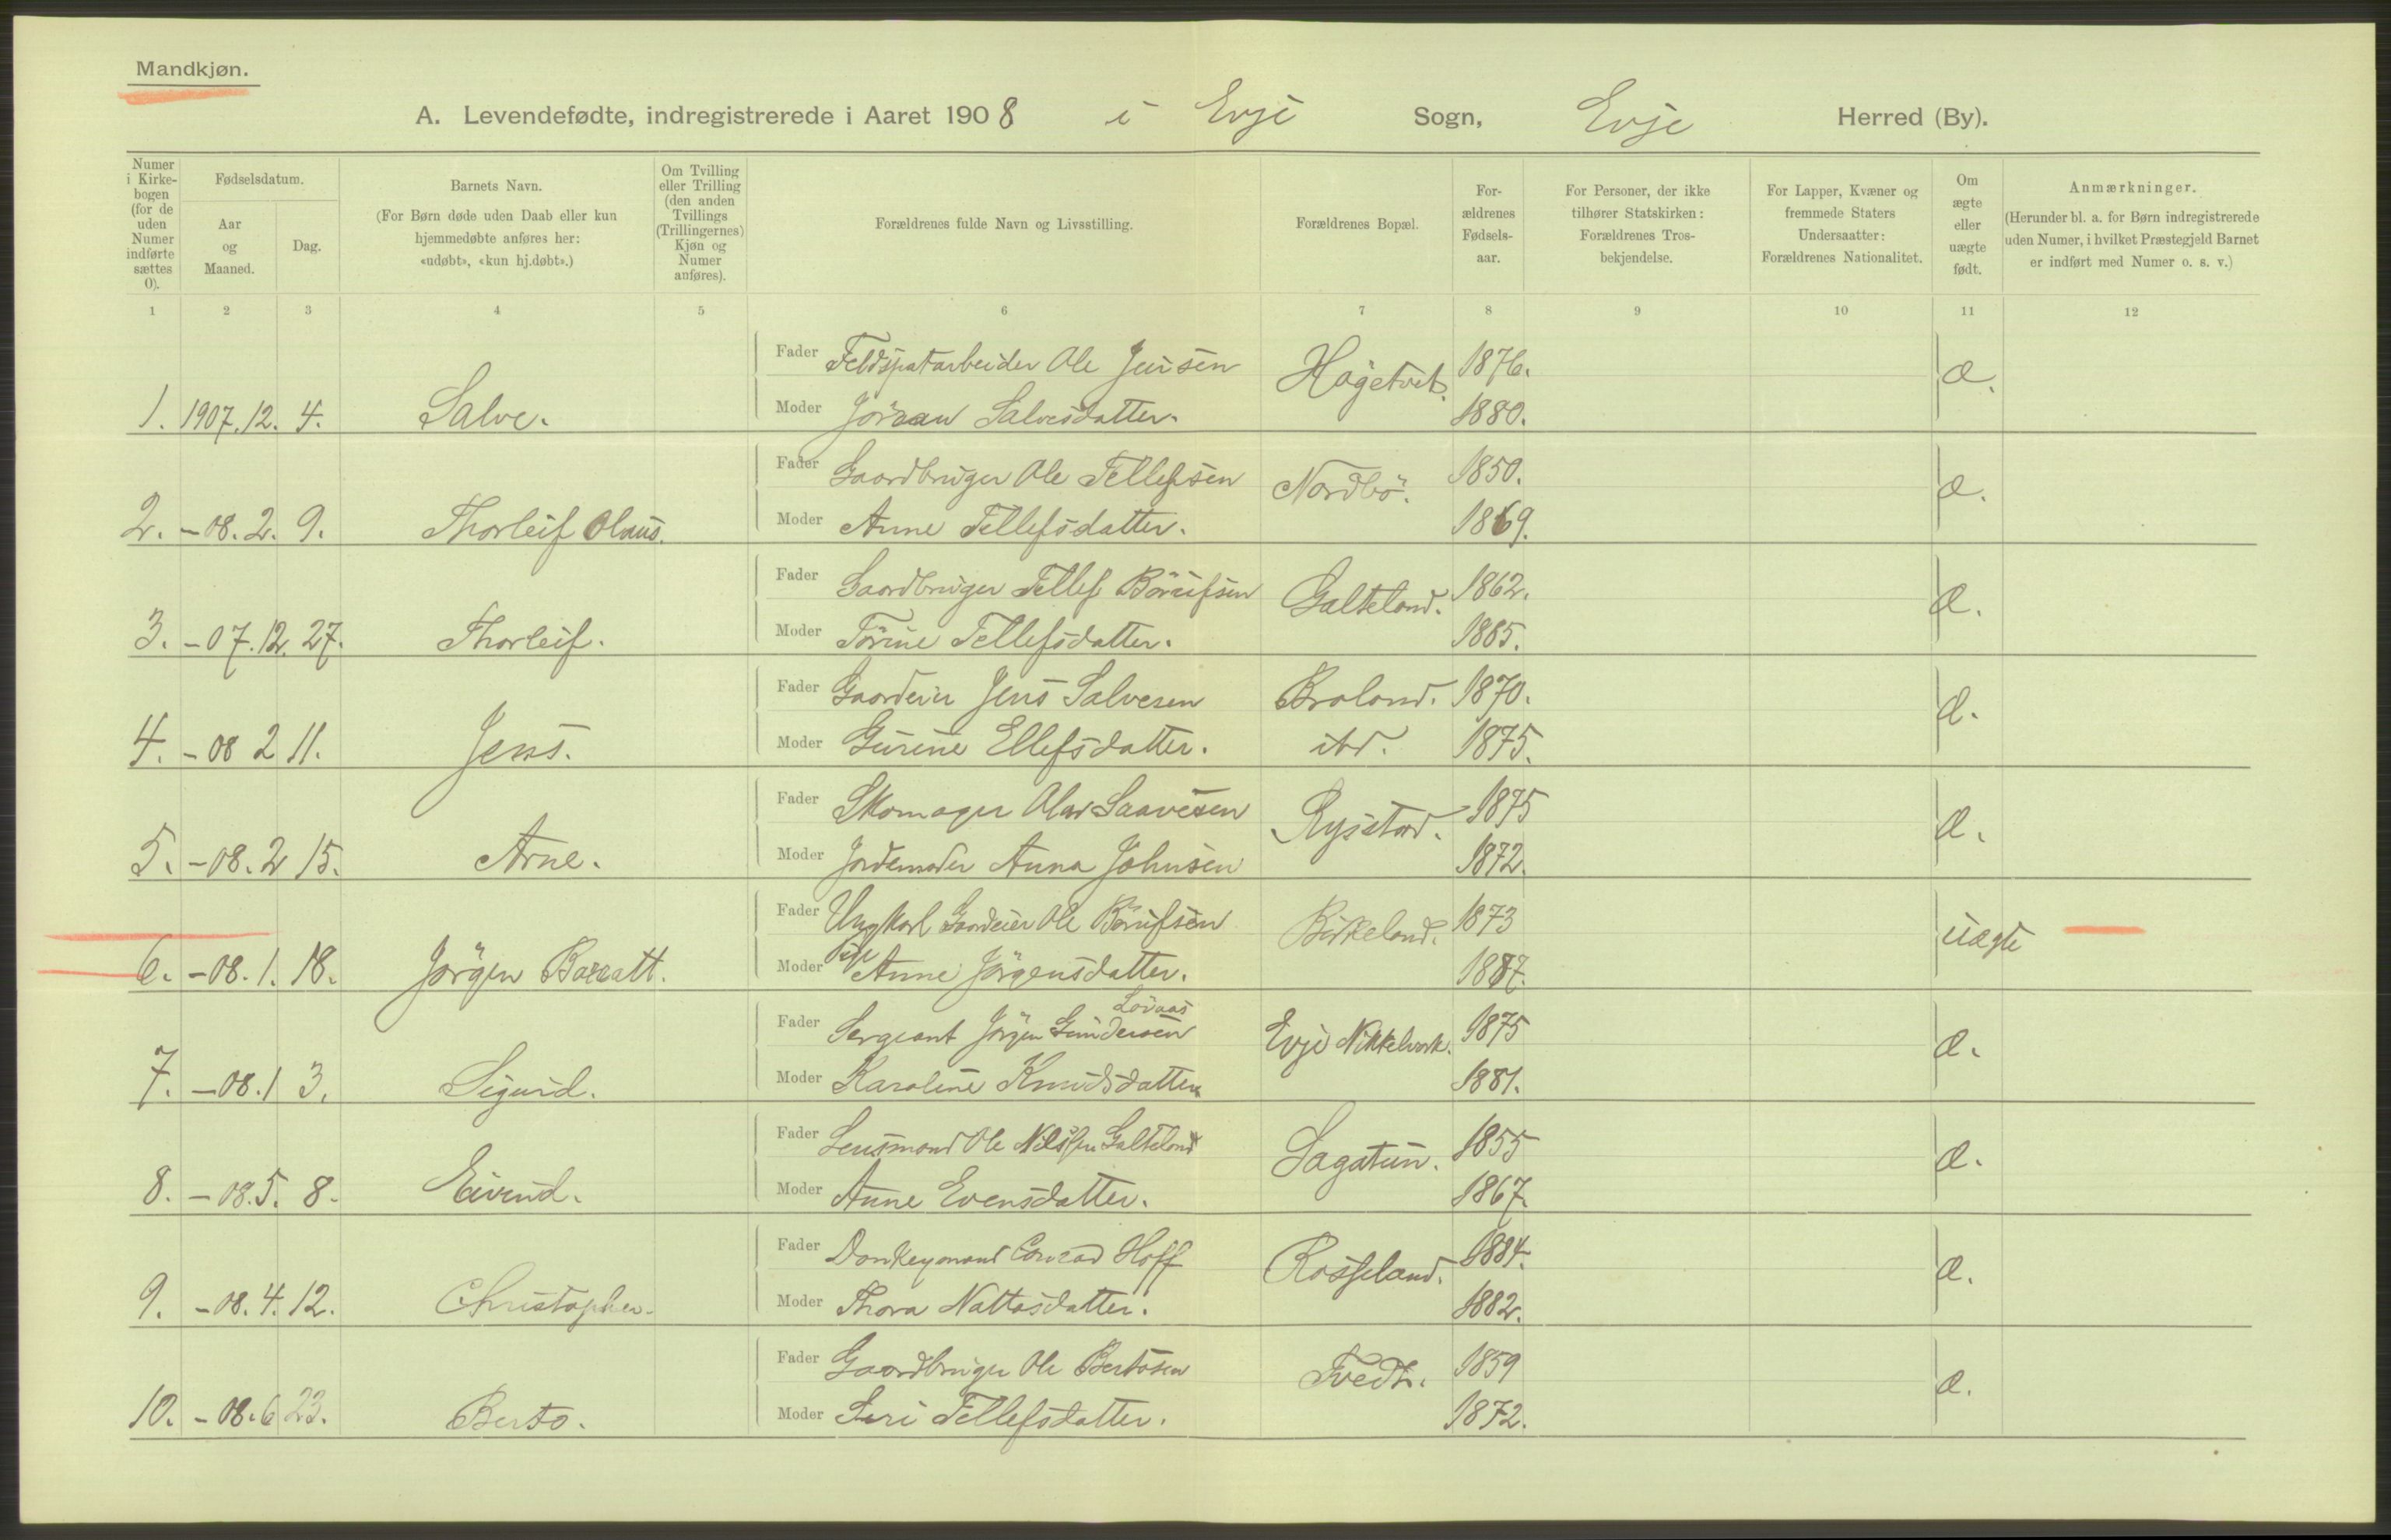 Mandkjøn.
A. Levendefødte, indregistrerede i Aaret 1908 i Evje Sogn, Evje Herred (By).
Numer i Kirkebogen (for de uden Numer indførte sættes 0).
Fødselsdatum.
Aar og Maaned.
Dag.
Barnets Navn.
(For Børn døde uden Daab eller kun hjemmedøbte anføres her: «udøbt», «kun hj.døbt».)
Om Tvilling eller Trilling (den anden Tvillings (Trillingernes) Kjøn og Numer anføres).
Forældrenes fulde Navn og Livsstilling.
Forældrenes Bopæl.
For-ældrenes Fødsels-aar.
For Personer, der ikke tilhører Statskirken: Forældrenes Tros-bekjendelse.
For Lapper, Kvæner og fremmede Staters Undersaatter: Forældrenes Nationalitet.
Om ægte eller uægte født.
Anmærkninger.
(Herunder bl. a. for Børn indregistrerede uden Numer, i hvilket Præstegjeld Barnet er indført med Numer o. s. v.)
1 2 3 4 5 6 7 8 9 10 11 12
Fader Feldspatarbeider Ole Jensen Hagetveit. 1876. æ.
1. 1907.12. 4. Salve. Moder Jöraan Salvesdatter. 1880.
Fader Gaardbruger Ole Tellefsen Nordbö. 1850. æ.
2. -08. 2. 9. Thorleif Olaus. Moder Anne Tellefsdatter. 1869.
Fader Gaardbruger Tellef Börufsen Galteland. 1862. æ.
3. -07.12. 27. Thorleif. Moder Törine Tellefsdatter. 1865.
Fader Gaardeier Jens Salvesen Kroland. 1870. æ.
4. -08 2 11. Jens. Moder Gurine Ellefsdatter. ibd. 1875.
Fader Skomager Olav Saavesen Rysstad. 1875 æ.
5. -08. 2 15. Arne. Moder Jordemoder Anna Johnsen 1872.
Fader Ungkarl Gaardeier Ole Börufsen Birkeland. 1873 uægte
6. -08. 1. 18. Jörgen Barratt. Moder Pige Anne Jörgensdatter. 1887.
Lövaas
Fader Sergeant Jörgen Gundersen Evje Nikkelverk. 1875 æ.
7. -08. 1 3. Sigurd. Moder Karoline Knudsdatter 1881.
Fader Lensmand Ole Nilssen Galteland Sagatun. 1855 æ.
8. -08. 5. 8. Eivind. Moder Anne Evensdatter. 1867.
Fader Donkeymand Conrad Hoff Rosseland. 1884. æ.
9. -08. 4. 12. Christopher. Moder Thora Nattosdatter. 1882.
Fader Gaardbruger Ole Bertosen Tvedt. 1859 æ.
10. -08. 6 23. Berto. Moder Siri Tellefsdatter. 1872.